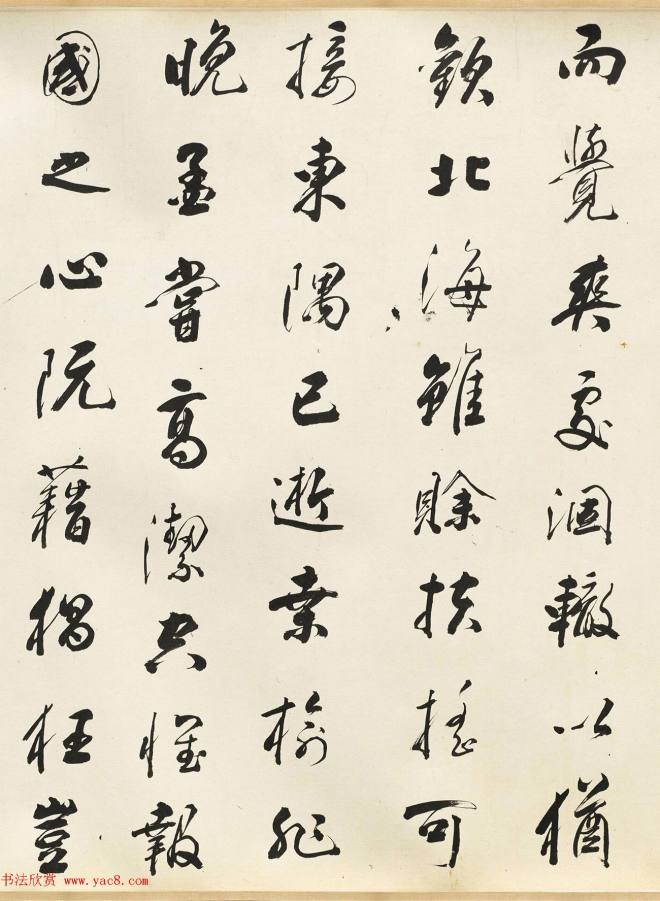 而覺爽處涸轍以猶
歡北海雖賒扶搖可
接東隅已逝桑榆非
晚孟嘗高潔空懷報
國之心阮藉猖狂豈
书法欣赏 www.yac8.com